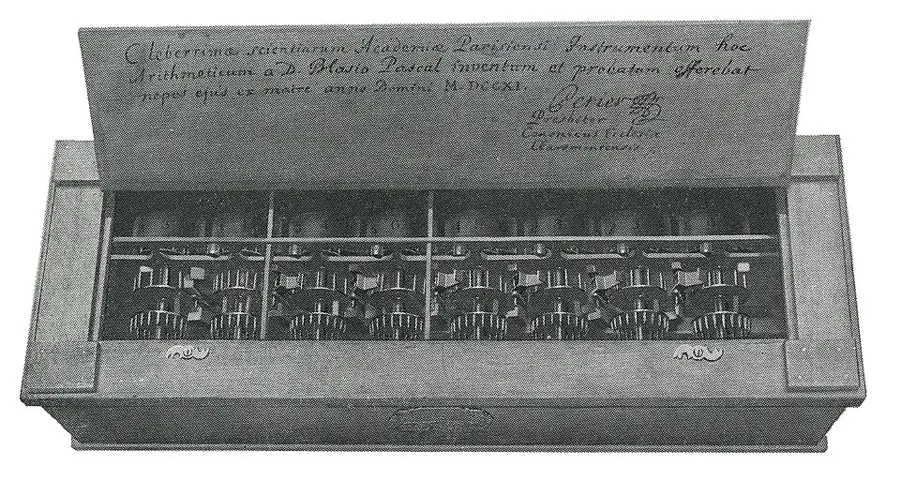 Cleberrimæ scientiarum Academiæ Parisiensi Instrumentum hoc
Arithmeticum a D. Blasio Pascal inventum et probatum offerebat
nepos ejus ex matre anno Domini M.DCCXI.
Perier
Presbiter
Canonicus Ecclesiæ
Claromontensis